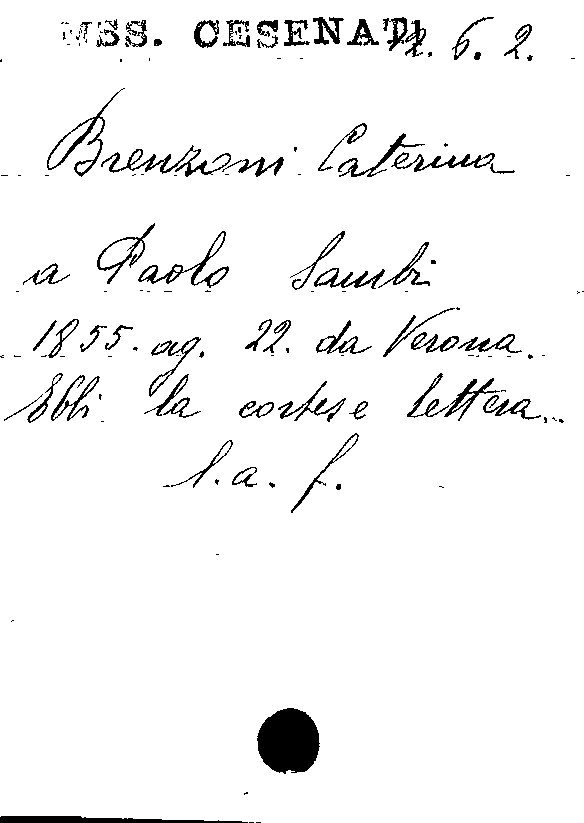 MSS. CESENATI 12. 6. 2.
Brenzoni Caterina
a Paolo Sambi
1855. ag. 22. da Verona.
Ebbi la cortese lettera..
l. a. f.